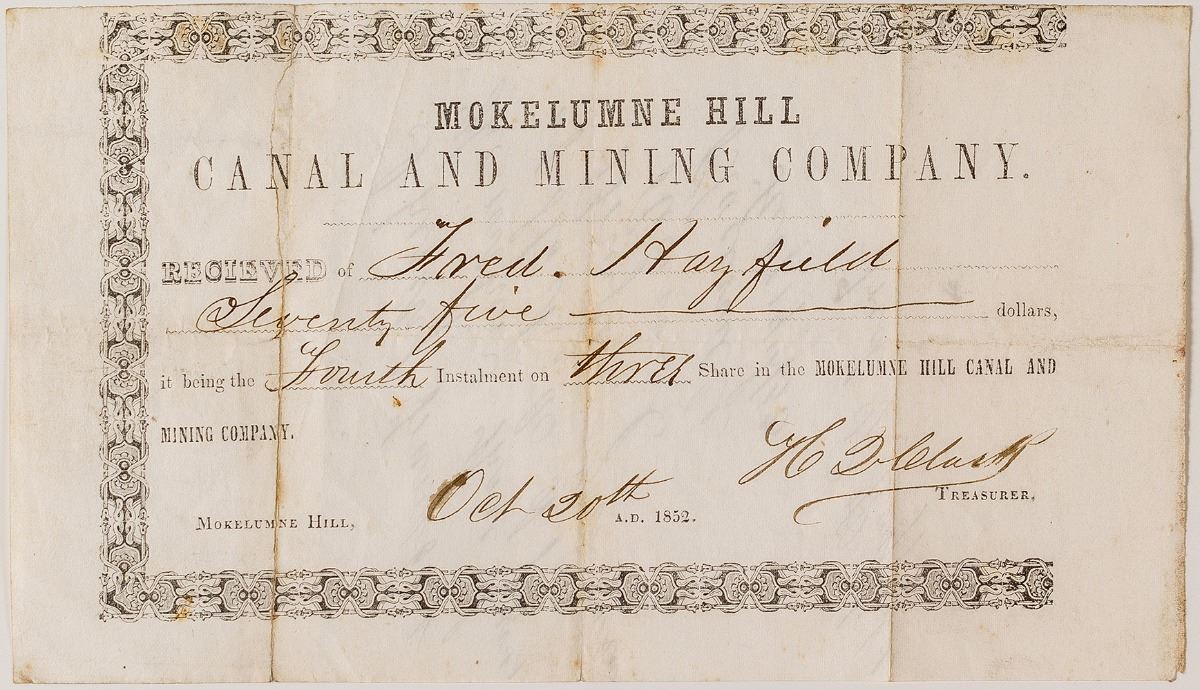 MOKELUMNE HILL
CANAL AND MINING COMPANY.
RECIEVED of Fred. Hayfield
Seventy five dollars,
it being the Fourth Instalment on three Share in the MOKELUMNE HILL CANAL AND
MINING COMPANY.
H D Clark
TREASURER,
MOKELUMNE HILL, Oct 20th A.D. 1852.